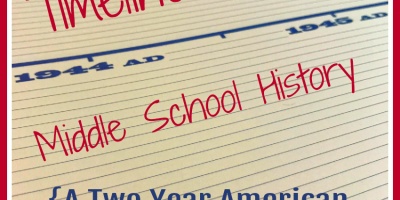 1944 AD 1945 AD
Middle School History
{A Two Year American